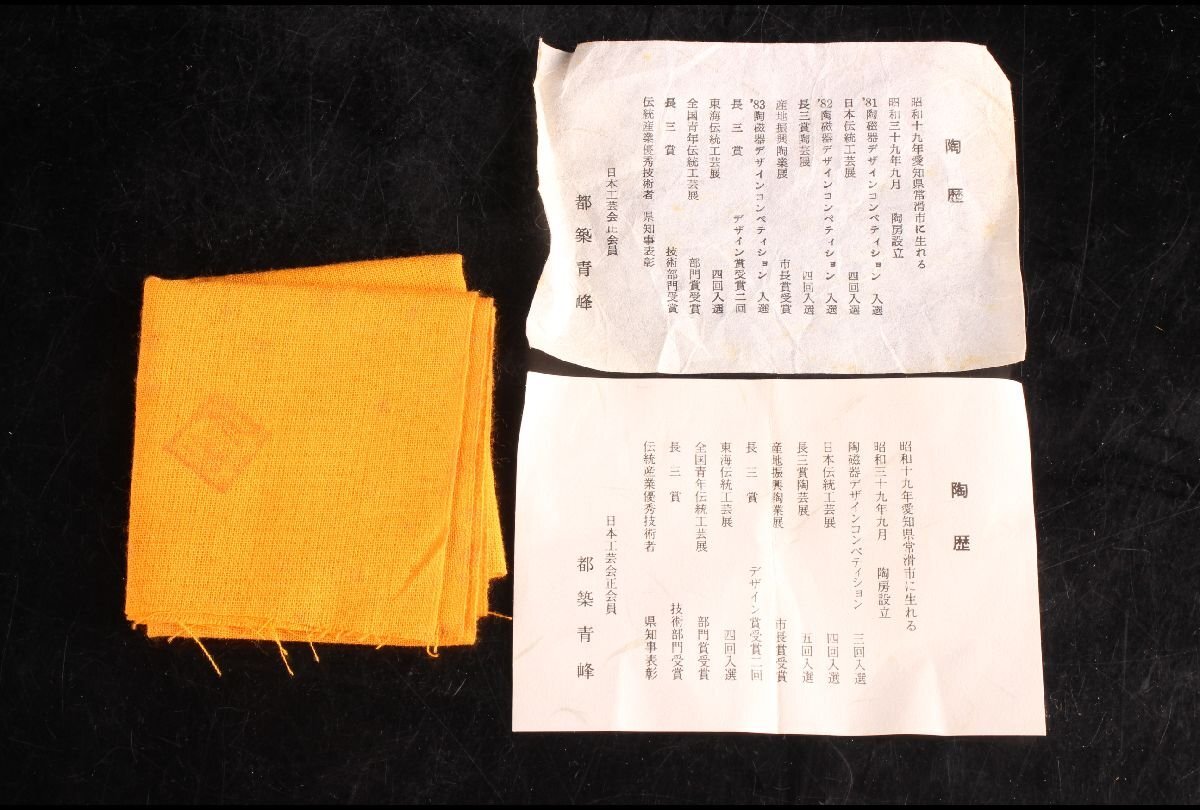 陶歴
昭和十九年愛知県常滑市に生れる
昭和三十九年九月 陶房設立
'81陶磁器デザインコンペティション 入選
日本伝統工芸展 四回入選
'82陶磁器デザインコンペティション 入選
長三賞陶芸展 四回入選
産地振興陶業展 市長賞受賞
'83陶磁器デザインコンペティション 入選
長三賞 デザイン賞受賞二回
東海伝統工芸展 四回入選
全国青年伝統工芸展 部門賞受賞
長三賞 技術部門受賞
伝統産業優秀技術者 県知事表彰
日本工芸会正会員
都築青峰
陶歴
昭和十九年愛知県常滑市に生れる
昭和三十九年九月 陶房設立
陶磁器デザインコンペティション 三回入選
日本伝統工芸展 四回入選
長三賞陶芸展 五回入選
産地振興陶業展 市長賞受賞
長三賞 デザイン賞受賞二回
東海伝統工芸展 四回入選
全国青年伝統工芸展 部門賞受賞
長三賞 技術部門受賞
伝統産業優秀技術者 県知事表彰
日本工芸会正会員
都築青峰